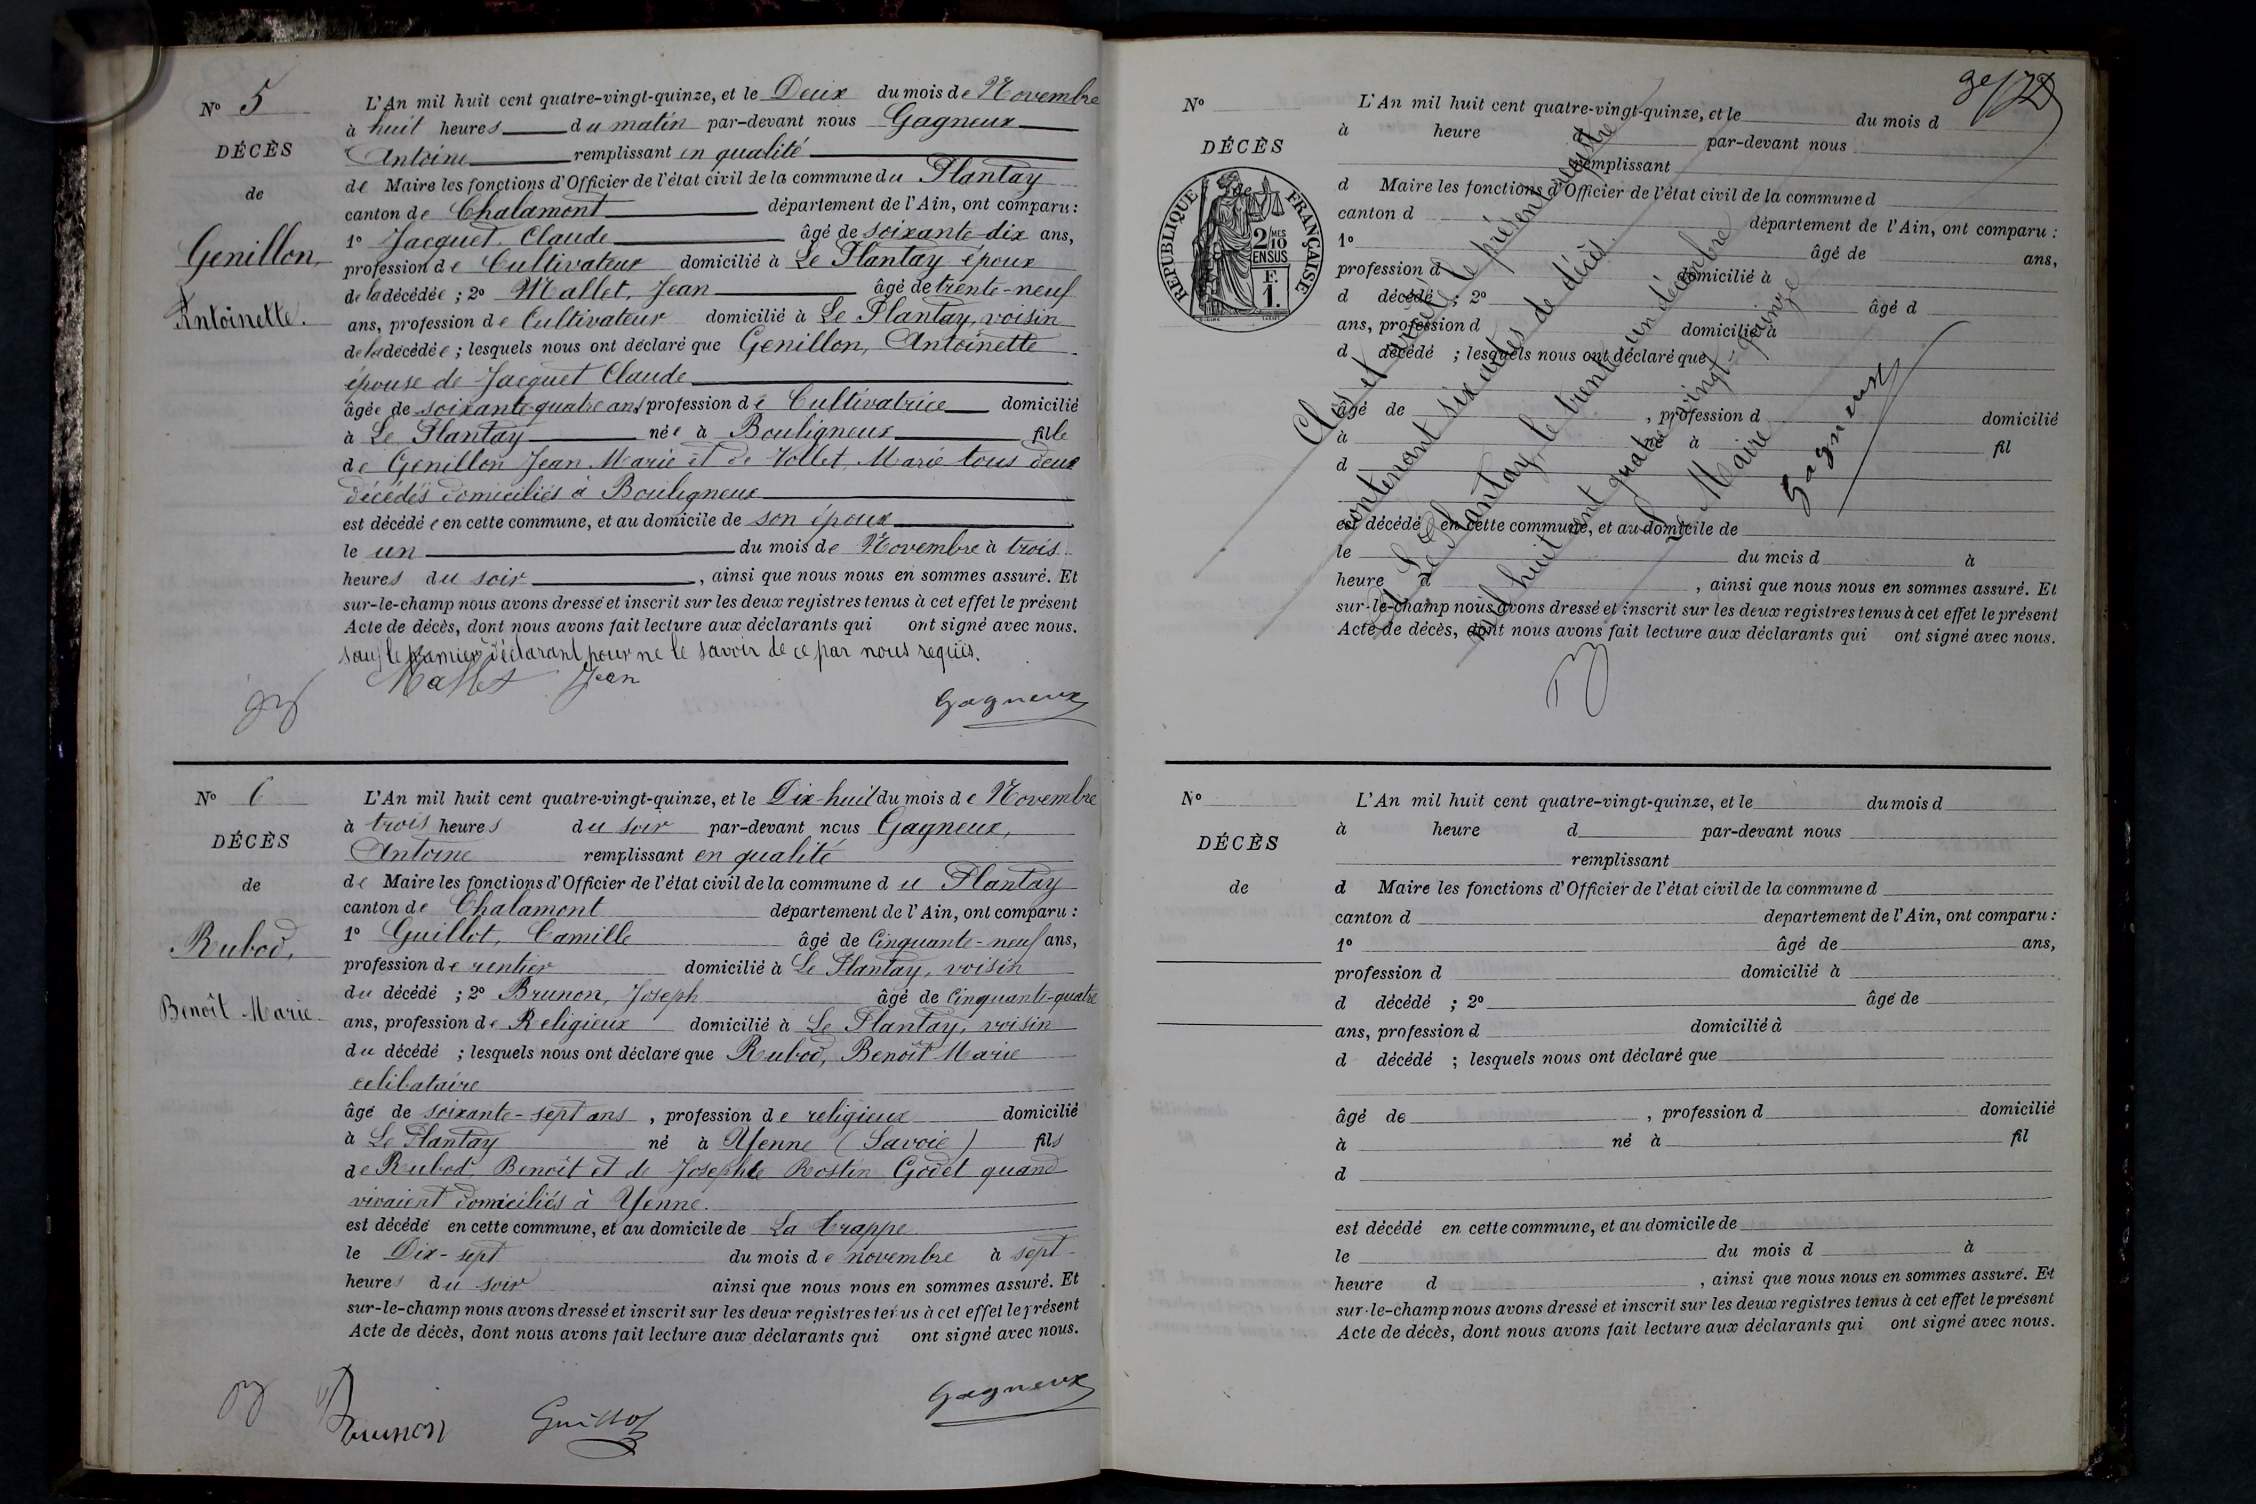 N° 5
DÉCÈS
de
Genillon,
Antoinette.
L'An mil huit cent quatre-vingt-quinze, et le Deux du mois de Novembre
à huit heures du matin par-devant nous Gagneux
Antoine remplissant en qualité
de Maire les fonctions d'Officier de l'état civil de la commune du Plantay
canton de Chalamont département de l'Ain, ont comparu :
1° Jacquet Claude âgé de soixante dix ans,
profession de Cultivateur domicilié à Le Plantay époux
de la décédée ; 2° Mallet, Jean âgé de trente-neuf
ans, profession de Cultivateur domicilié à Le Plantay, voisin
de la décédée ; lesquels nous ont déclaré que Genillon, Antoinette
épouse de Jacquet Claude
âgée de soixante-quatre ans profession de Cultivatrice domicilié
à Le Plantay née à Bouligneux fille
de Genillon Jean Marie et de Vollet, Marie tous deux
décédés domiciliés à Bouligneux
est décédée en cette commune, et au domicile de son époux
le un du mois de Novembre à trois
heures du soir, ainsi que nous nous en sommes assuré. Et
sur-le-champ nous avons dressé et inscrit sur les deux registres tenus à cet effet le présent
Acte de décès, dont nous avons fait lecture aux déclarants qui ont signé avec nous.
sauf le premier déclarant pour ne le savoir de ce par nous requis.
Mallet Jean
Gagneux
N° 6
DÉCÈS
de
Rubod,
Benoît Marie
L'An mil huit cent quatre-vingt-quinze, et le Dix-huit du mois de Novembre
à trois heures du soir par-devant nous Gagneux,
Antoine remplissant en qualité
de Maire les fonctions d'Officier de l'état civil de la commune du Plantay
canton de Chalamont département de l'Ain, ont comparu :
1° Guillot, Camille âgé de Cinquante-neuf ans,
profession de rentier domicilié à Le Plantay, voisin
du décédé ; 2° Brunon, Joseph âgé de Cinquante-quatre
ans, profession de Religieux domicilié à Le Plantay, voisin
du décédé ; lesquels nous ont déclaré que Rubod, Benoît Marie
celibataire
âgé de soixante-sept ans, profession de religieux domicilié
à Le Plantay né à Yenne (Savoie) fils
de Rubod Benoît et de Josephte Rostin Godet quand
vivaient domiciliés à Yenne.
est décédé en cette commune, et au domicile de La trappe
le Dix-sept du mois de novembre à sept
heures du soir ainsi que nous nous en sommes assuré. Et
sur-le-champ nous avons dressé et inscrit sur les deux registres tenus à cet effet le présent
Acte de décès, dont nous avons fait lecture aux déclarants qui ont signé avec nous.
Brunon Guillot Gagneux
N°
DÉCÈS
de
RÉPUBLIQUE FRANÇAISE
2/10 MES
EN SUS
F.
1.
L'An mil huit cent quatre-vingt-quinze, et le du mois d
à heure d par-devant nous
remplissant
d Maire les fonctions d'Officier de l'état civil de la commune d
canton d département de l'Ain, ont comparu :
1° âgé de ans,
profession d domicilié à
d décédé ; 2° âgé d
ans, profession d domicilié à
d décédé ; lesquels nous ont déclaré que
âgé de , profession d domicilié
à né à fil
d
est décédé en cette commune, et au domicile de
le du mois d à
heure d , ainsi que nous nous en sommes assuré. Et
sur-le-champ nous avons dressé et inscrit sur les deux registres tenus à cet effet le présent
Acte de décès, dont nous avons fait lecture aux déclarants qui ont signé avec nous.
Clos et arrêté le présent registre
contenant six actes de décès
A Le Plantay, le trente un décembre
mil huit cent quatre vingt-quinze
Le Maire
Gagneux
N°
DÉCÈS
de
L'An mil huit cent quatre-vingt-quinze, et le du mois d
à heure d par-devant nous
remplissant
d Maire les fonctions d'Officier de l'état civil de la commune d
canton d departement de l'Ain, ont comparu :
1° âgé de ans,
profession d domicilié à
d décédé ; 2° âgé de
ans, profession d domicilié à
d décédé ; lesquels nous ont déclaré que
âgé de , profession d domicilié
à né à fil
d
est décédé en cette commune, et au domicile de
le du mois d à
heure d , ainsi que nous nous en sommes assuré. Et
sur-le-champ nous avons dressé et inscrit sur les deux registres tenus à cet effet le présent
Acte de décès, dont nous avons fait lecture aux déclarants qui ont signé avec nous.